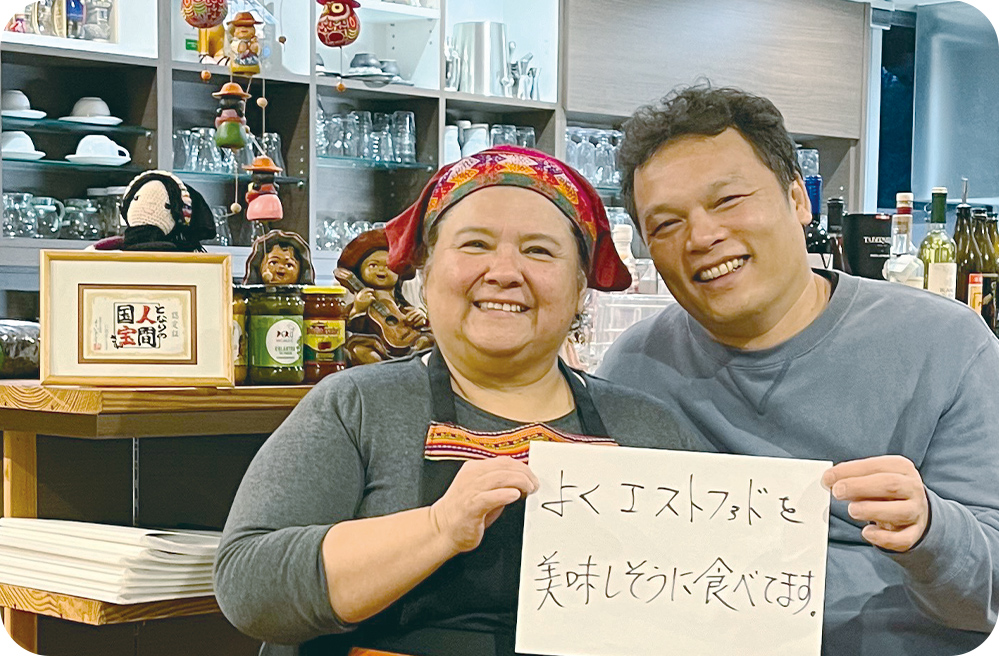 認定証
となりの
人間
国宝
よくエストファドを
美味しそうに食べてます。